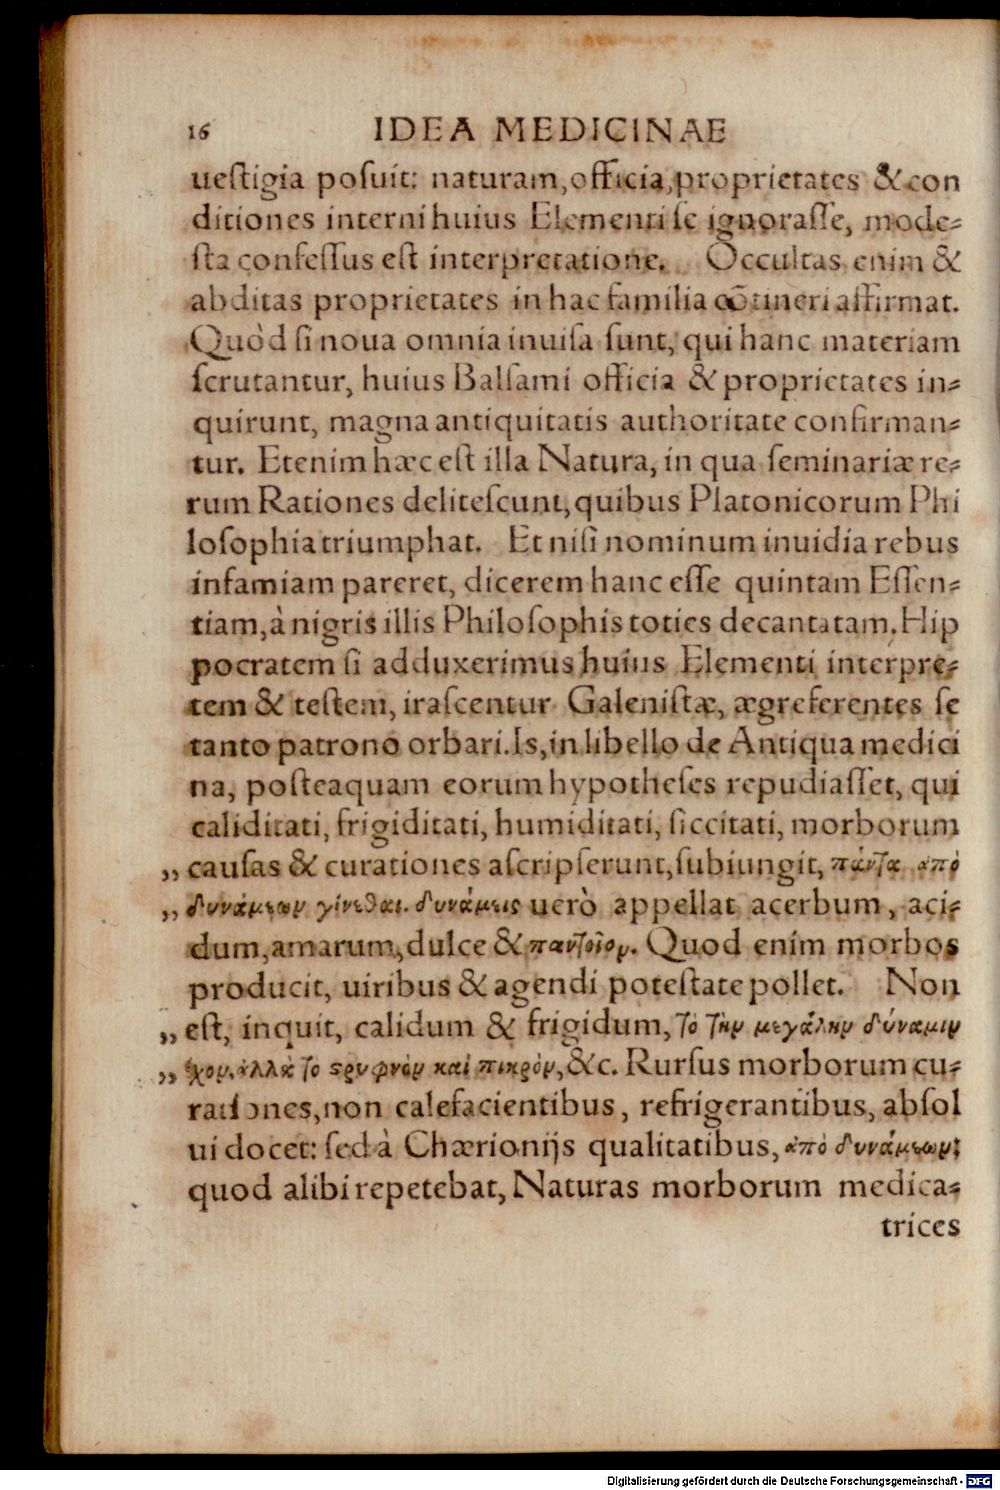 16 IDEA MEDICINAE
ueſtigia poſuit: naturam, officia, proprietates & con
ditiones interni huius Elementi ſe ignoraſſe, mode-
ſta confeſſus eſt interpretatione. Occultas enim &
abditas proprietates in hac familia cōtineri affirmat.
Quòd ſi noua omnia inuiſa ſunt, qui hanc materiam
ſcrutantur, huius Balſami officia & proprietates in-
quirunt, magna antiquitatis authoritate confirman-
tur. Etenim hæc eſt illa Natura, in qua ſeminariæ re-
rum Rationes deliteſcunt, quibus Platonicorum Phi
loſophia triumphat. Et niſi nominum inuidia rebus
infamiam pareret, dicerem hanc eſſe quintam Eſſen-
tiam, à nigris illis Philoſophis toties decantatam. Hip
pocratem ſi adduxerimus huius Elementi interpre-
tem & teſtem, iraſcentur Galeniſtæ, ægreferentes ſe
tanto patrono orbari. Is, in libello de Antiqua medici
na, poſteaquam eorum hypotheſes repudiaſſet, qui
caliditati, frigiditati, humiditati, ſiccitati, morborum
„ cauſas & curationes aſcripſerunt, ſubiungit, πάντα ἀπὸ
„ δυνάμεων γίνεσθαι. δυνάμεις uerò appellat acerbum, aci-
dum, amarum, dulce & παντοῖον. Quod enim morbos
producit, uiribus & agendi poteſtate pollet. Non
„ eſt, inquit, calidum & frigidum, τὸ τὴν μεγάλην δύναμιν
„ ἔχον, ἀλλὰ τὸ στρυφνὸν καὶ πικρὸν, &c. Rurſus morborum cu-
rationes, non calefacientibus, refrigerantibus, abſol
ui docet: ſed à Chærionijs qualitatibus, ἀπὸ δυνάμεων:
quod alibi repetebat, Naturas morborum medica-
trices
Digitalisierung gefördert durch die Deutsche Forschungsgemeinschaft - DFG